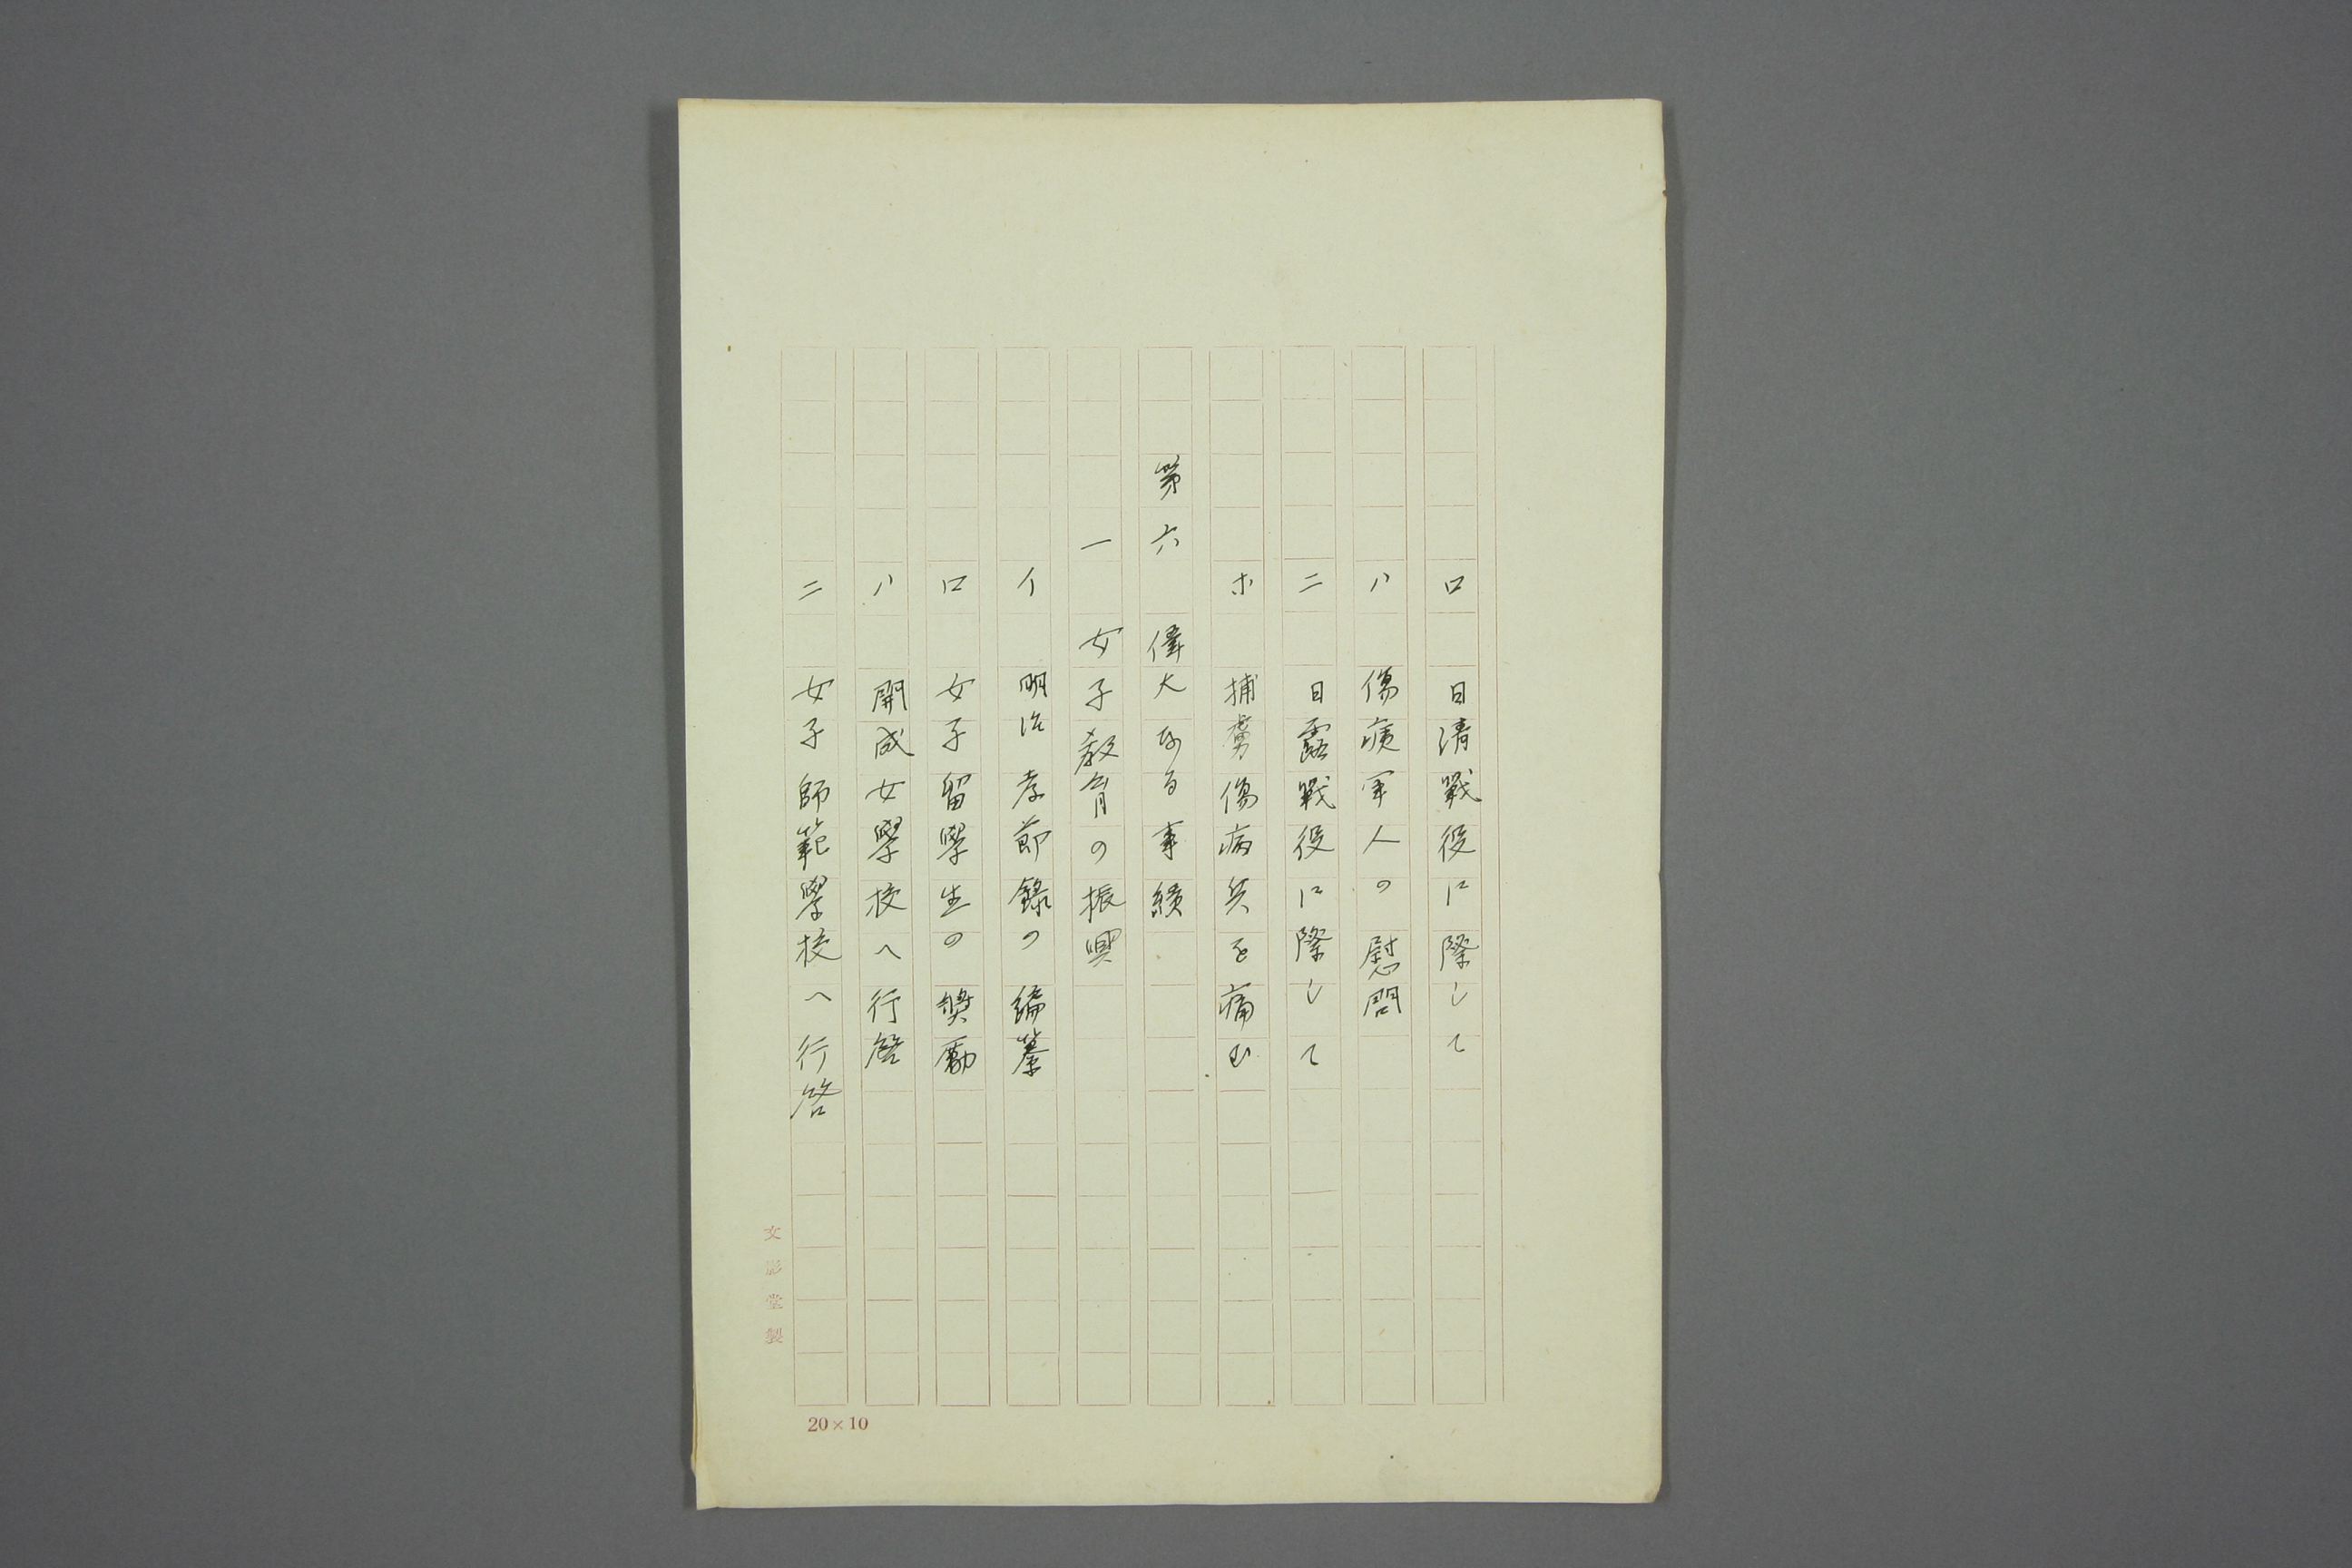 ロ 日清戰役に際して
ハ 傷痍軍人の慰問
ニ 日露戰役に際して
ホ 捕虜傷病兵を痛む
第六 偉大なる事績
一 女子教育の振興
イ 明治孝節錄の編纂
ロ 女子留學生の奬勵
ハ 開成女學校へ行啓
ニ 女子師範學校へ行啓
文影堂製
20×10